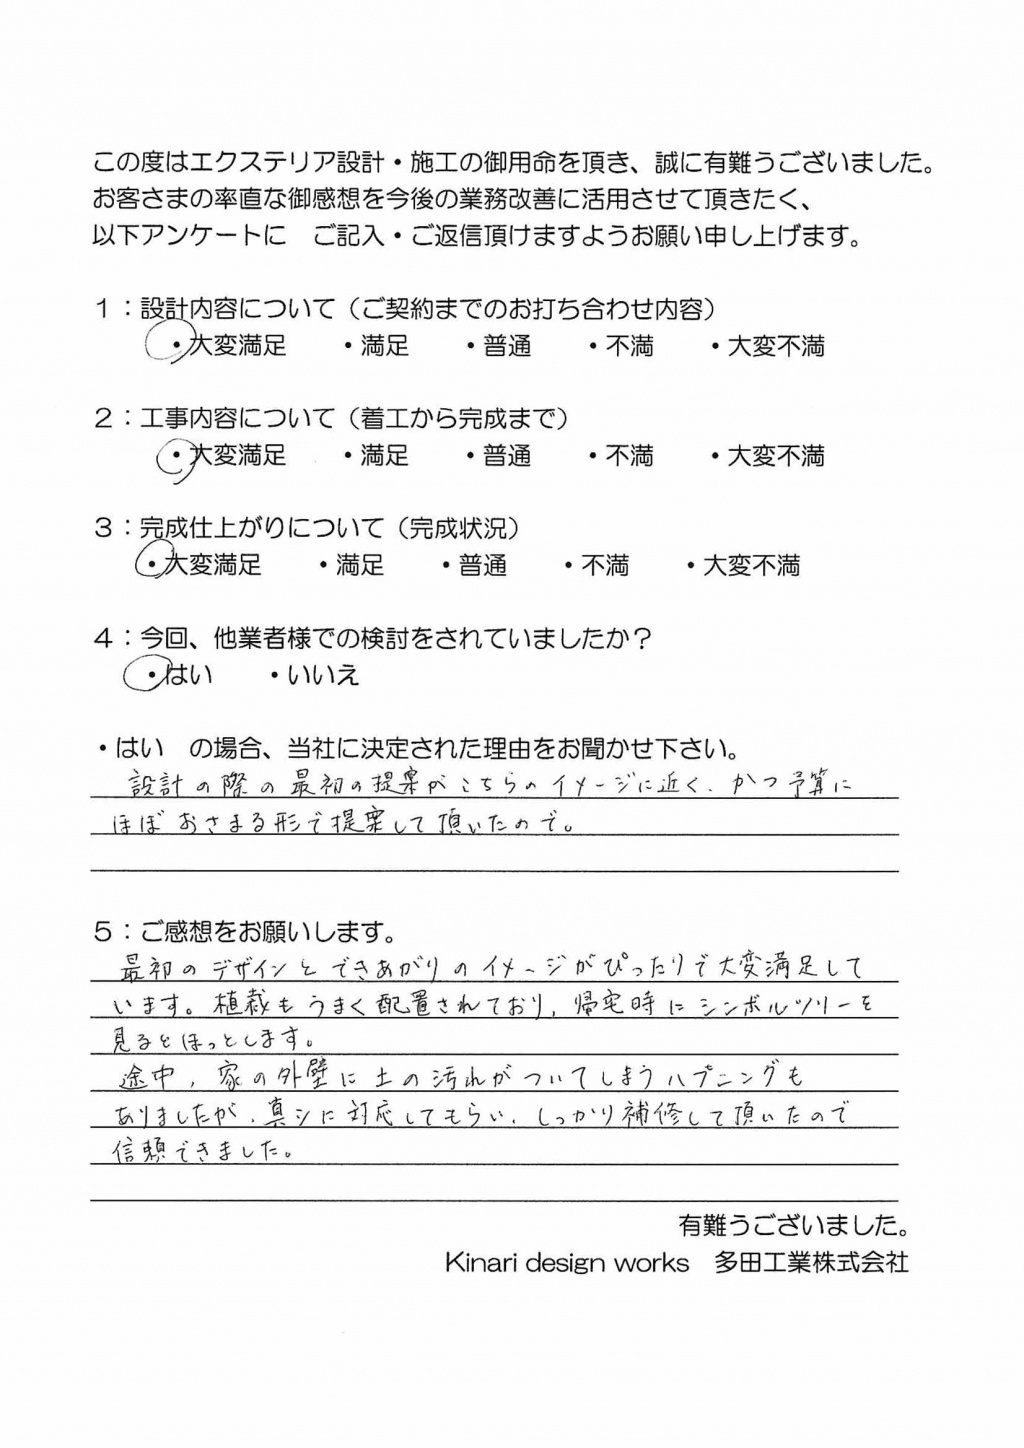 この度はエクステリア設計・施工の御用命を頂き、誠に有難うございました。
お客さまの率直な御感想を今後の業務改善に活用させて頂きたく、
以下アンケートに　ご記入・ご返信頂けますようお願い申し上げます。
１：設計内容について（ご契約までのお打ち合わせ内容）
・大変満足　・満足　・普通　・不満　・大変不満
２：工事内容について（着工から完成まで）
・大変満足　・満足　・普通　・不満　・大変不満
３：完成仕上がりについて（完成状況）
・大変満足　・満足　・普通　・不満　・大変不満
４：今回、他業者様での検討をされていましたか？
・はい　・いいえ
・はい　の場合、当社に決定された理由をお聞かせ下さい。
設計の際の最初の提案がこちらのイメージに近く、かつ予算に
ほぼおさまる形で提案して頂いたので。
５：ご感想をお願いします。
最初のデザインとできあがりのイメージがぴったりで大変満足して
います。植栽もうまく配置されており、帰宅時にシンボルツリーを
見るとほっとします。
途中、家の外壁に土の汚れがついてしまうハプニングも
ありましたが、真シに対応してもらい、しっかり補修して頂いたので
信頼できました。
有難うございました。
Kinari design works　多田工業株式会社